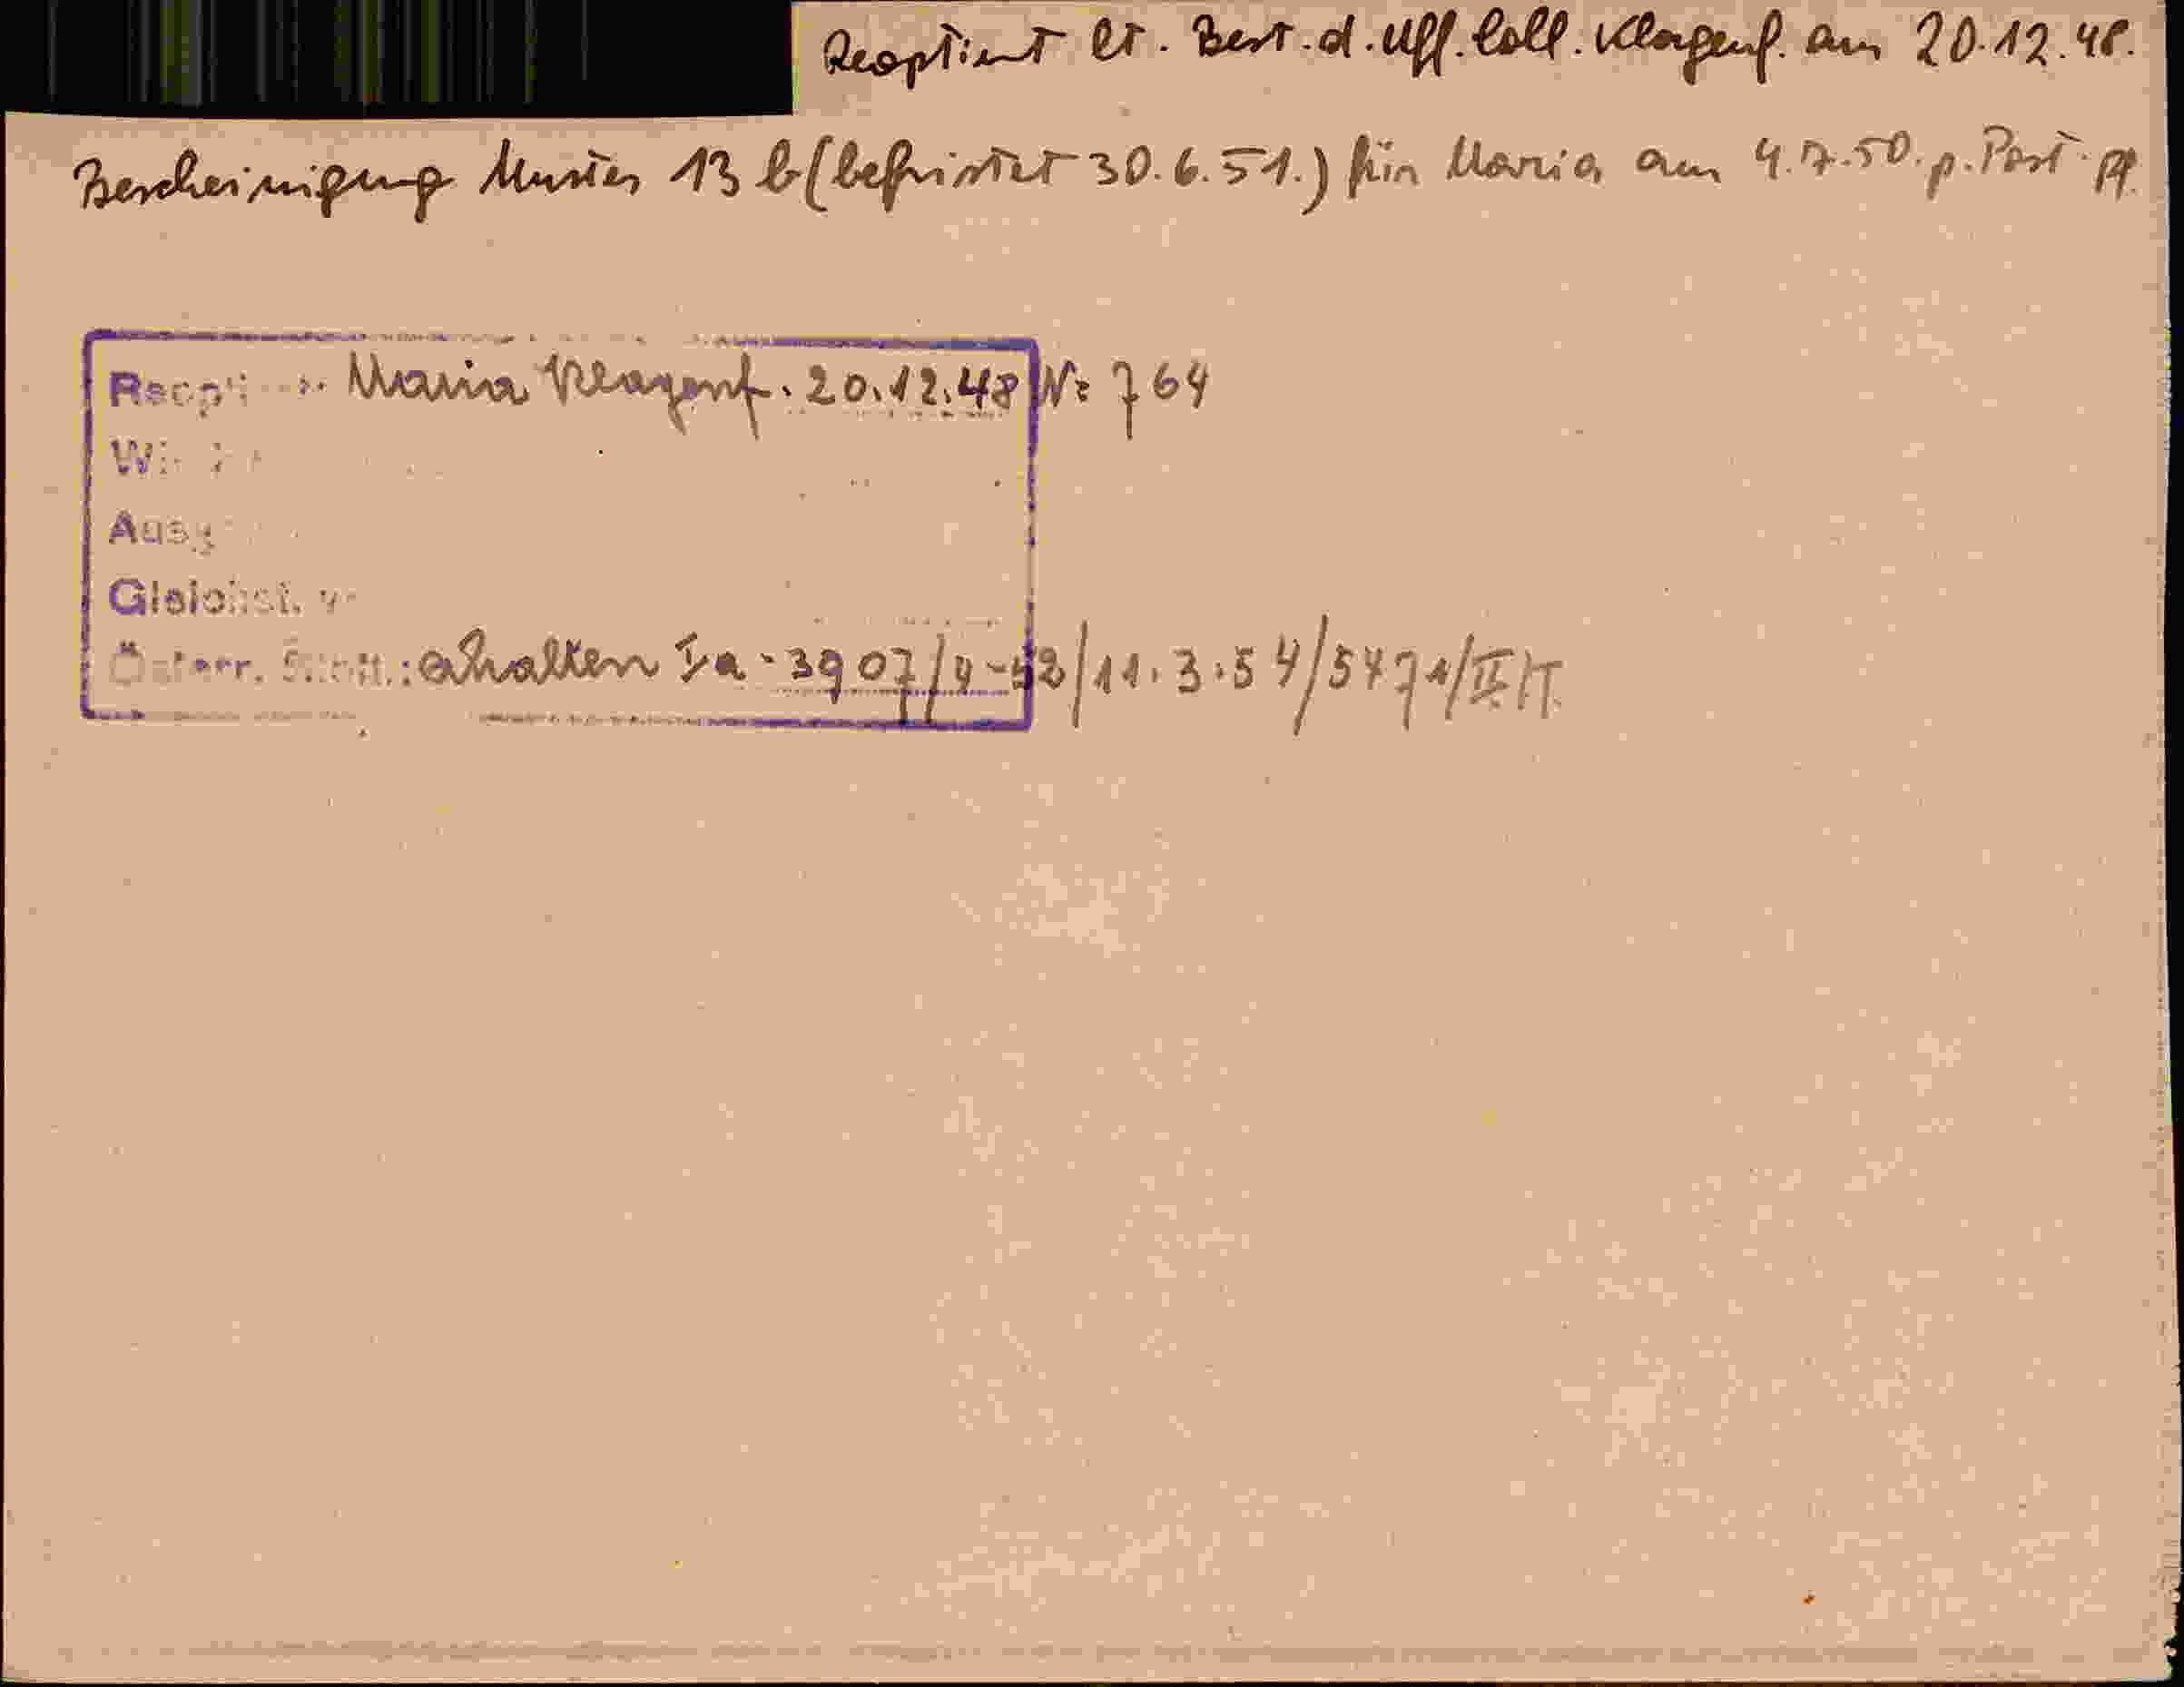 Reoptient lt. Best. d. Uff. Coll. Klagenf. am 20.12.48.
Bescheinigung Muster 13 b (befristet 30.6.51.) für Maria am 4.7.50. p. Post.
Maria Klagenf. 20.12.48 Nr 764
Gleichst.
Österr. erhalten Ia-3907/4-52/11.3.54/5471/II/T.